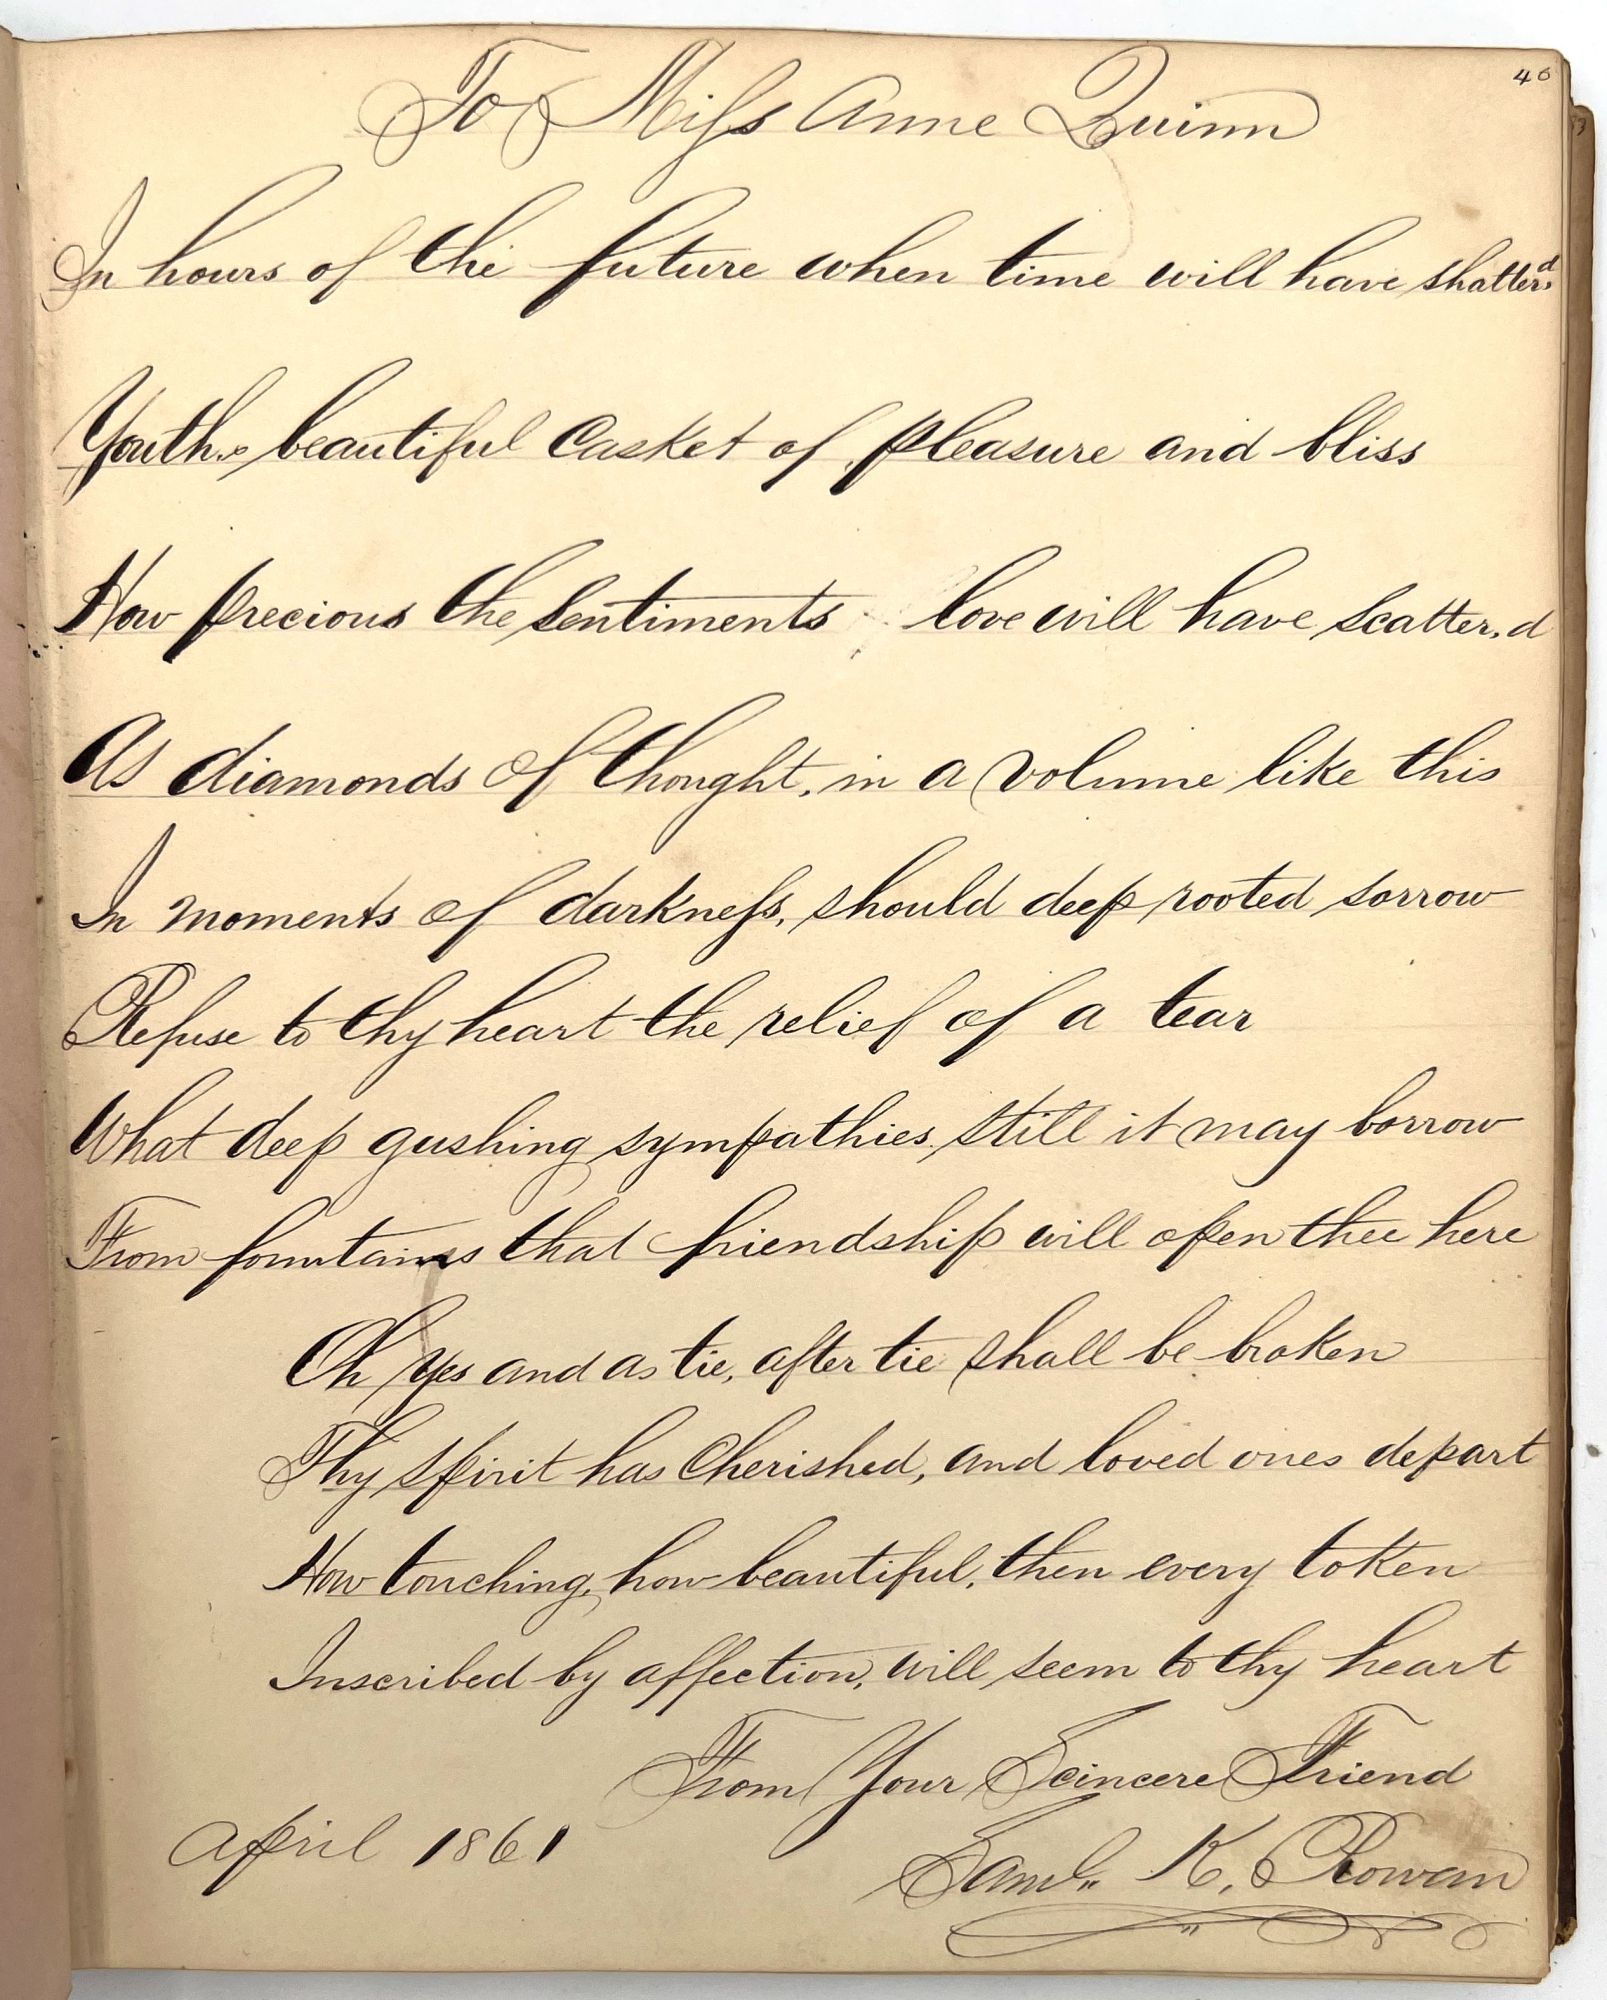 46
To Miss Anne Quinn
In hours of the future when time will have shatter.d
Youth,s beautiful Casket of pleasure and bliss
How precious the sentiments love will have scatter,d
As diamonds of thought, in a volume like this
In moments of darkness, should deep rooted sorrow
Refuse to thy heart the relief of a tear
What deep gushing sympathies, still it may borrow
From fountains that friendship will open thee here
Oh yes and as tie, after tie shall be broken
Thy spirit has Cherished, and loved ones depart
How touching, how beautiful, then every token
Inscribed by affection, will seem to thy heart
From Your Scincere Friend
April 1861
Saml. K. Rowan